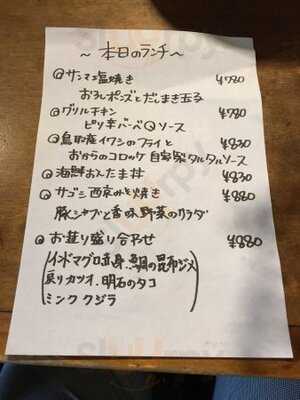 ～本日のランチ～
@サンマ塩焼き ¥780
おろしポンズとだしまき玉子
@グリルチキン ¥780
ピリ辛バーベQソース
@鳥取産イワシのフライと ¥830
おからのコロッケ 自家製タルタルソース
@海鮮おんたま丼 ¥830
@サゴシ西京みそ焼き ¥880
豚シャブと香味野菜のサラダ
@お造り盛り合わせ ¥880
インドマグロ赤身.鯛の昆布ジメ
戻りカツオ.明石のタコ
ミンククジラ